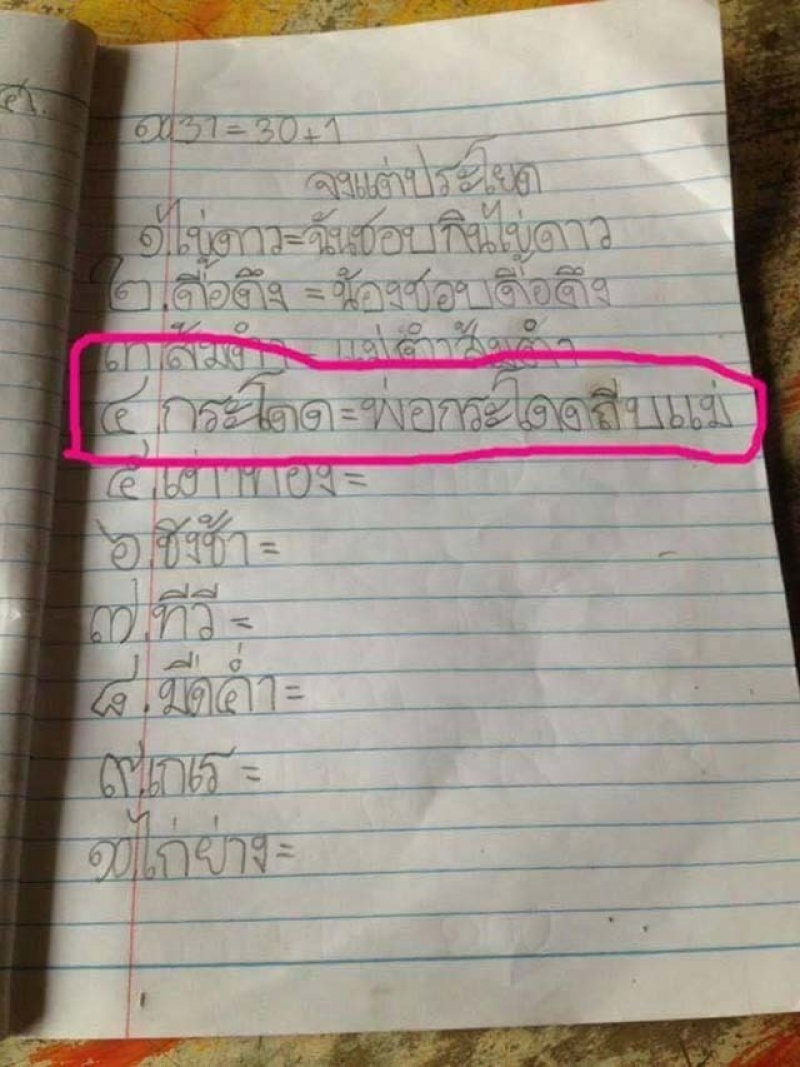 ๑๐.31 = 30+1
จงแต่ประโยด
๑.ไข่ดาว=ฉันชอบกินไข่ดาว
๒.ดื้อดึง =น้องชอบดื้อดึง
๓.ส้มตำ = แม่ตำส้มตำ
๔.กระโดด=พ่อกระโดดถีบแม่
๕.เต่าทอง=
๖.ชิงช้า =
๗.ทีวี =
๘.มืดค่ำ=
๙.เกเร =
๑๐.ไก่ย่าง=